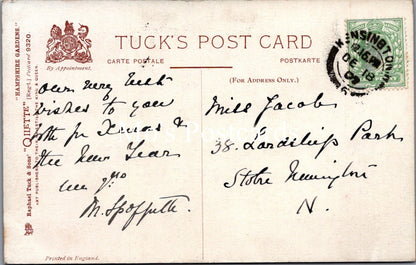 TUCK'S POST CARD
CARTE POSTALE
POSTKARTE
(FOR ADDRESS ONLY.)
By Appointment.
Raphael Tuck & Sons' "OILETTE" [Regd.] Postcard 9320.
"HAMPSHIRE GARDENS."
ART PUBLISHERS TO THEIR MAJESTIES THE KING AND QUEEN
KENSINGTON
DE 18
09
Our very best
wishes to you
both for Xmas &
the New Year
Miss Jacobs
38. Lordship Park
Stoke Newington
N.
Printed in England.